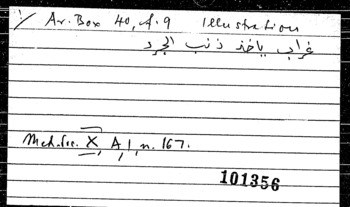 Ar. Box 40, f. 9 Illustration
غراب ياخذ ذنب الجرد
Med. Soc. X, A, 1, n. 167.
101356